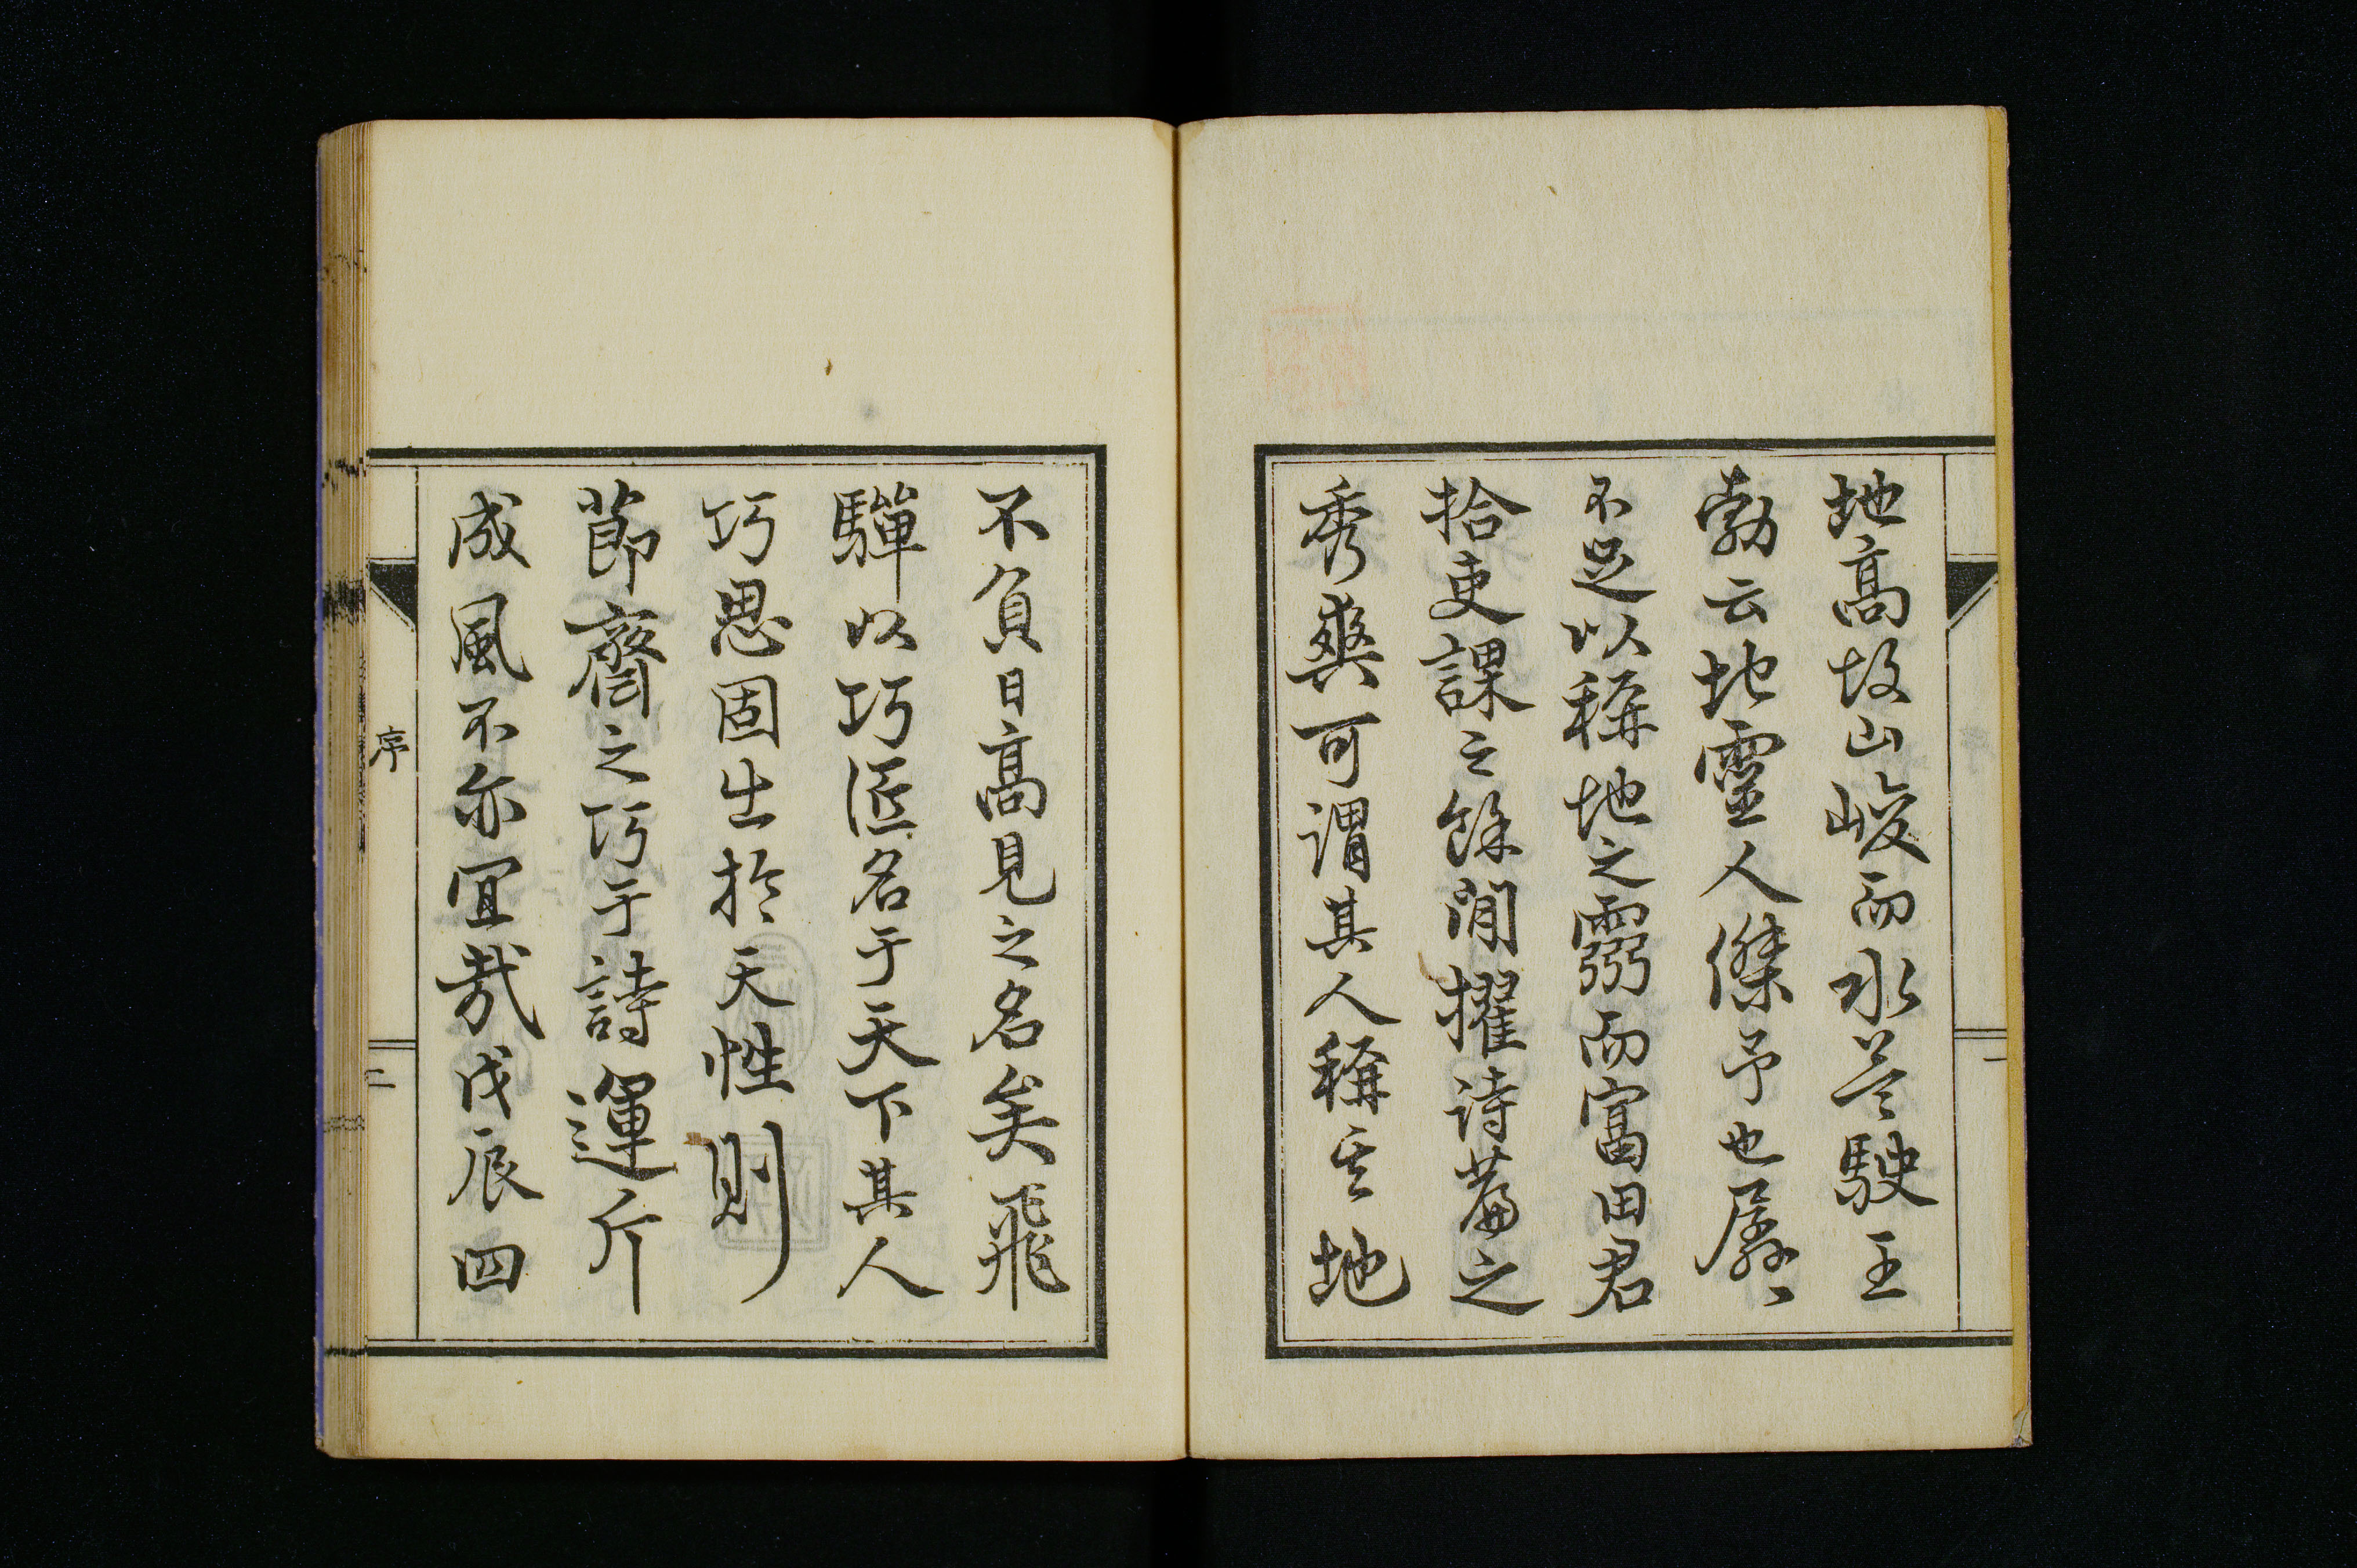 地高故山峻而水益駛王
勃云地靈人傑予也孱〻
不足以稱地之靈而富田君
拾吏課之餘閒擢詩篇之
秀爽可謂其人稱其地
不負日高見之名矣飛
驒以巧匠名于天下其人
巧思固出於天性則
節齋之巧于詩運斤
成風不亦宜哉戊辰四
序
二
一